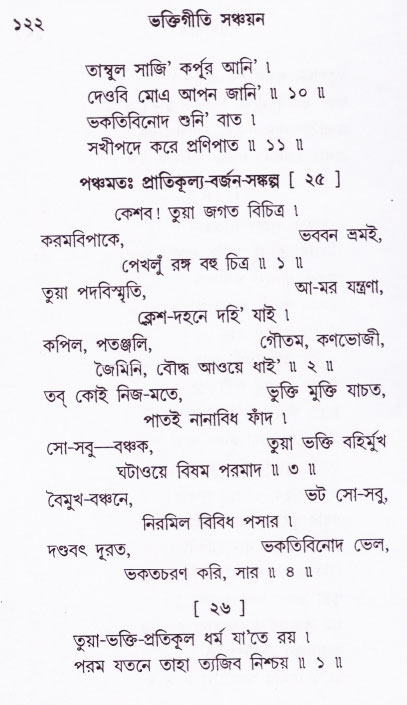 ১২২ ভক্তিগীতি সঞ্চয়ন
তাম্বুল সাজি’ কর্পূর আনি’ ।
দেওবি মোএ আপন জানি’ ॥ ১০ ॥
ভকতিবিনোদ শুনি’ বাত ।
সখীপদে করে প্রণিপাত ॥ ১১ ॥
পঞ্চমতঃ প্রাতিকূল্য-বর্জন-সঙ্কল্প [ ২৫ ]
কেশব! তুয়া জগত বিচিত্র ।
করমবিপাকে, ভববন ভ্রমই,
পেখলুঁ রঙ্গ বহু চিত্র ॥ ১ ॥
তুয়া পদবিস্মৃতি, আ-মর যন্ত্রণা,
ক্লেশ-দহনে দহি’ যাই ।
কপিল, পতঞ্জলি, গৌতম, কণভোজী,
জৈমিনি, বৌদ্ধ আওয়ে ধাই’ ॥ ২ ॥
তব্ কোই নিজ-মতে, ভুক্তি মুক্তি যাচত,
পাতই নানাবিধ ফাঁদ ।
সো-সবু—বঞ্চক, তুয়া ভক্তি বহির্মুখ
ঘটাওয়ে বিষম পরমাদ ॥ ৩ ॥
বৈমুখ-বঞ্চনে, ভট সো-সবু,
নিরমিল বিবিধ পসার ।
দণ্ডবৎ দূরত, ভকতিবিনোদ ভেল,
ভকতচরণ করি, সার ॥ ৪ ॥
[ ২৬ ]
তুয়া-ভক্তি-প্রতিকূল ধর্ম যা’তে রয় ।
পরম যতনে তাহা ত্যজিব নিশ্চয় ॥ ১ ॥